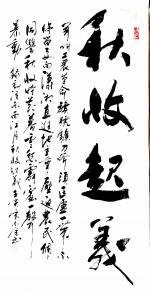 秋收起義
軍叫工農革命旗號鐮刀斧頭匡廬一帶不
停留要向瀟湘直進地主重重壓迫農民個個
同仇秋收時節暮雲愁霹靂一聲
暴動 西江月秋收起義